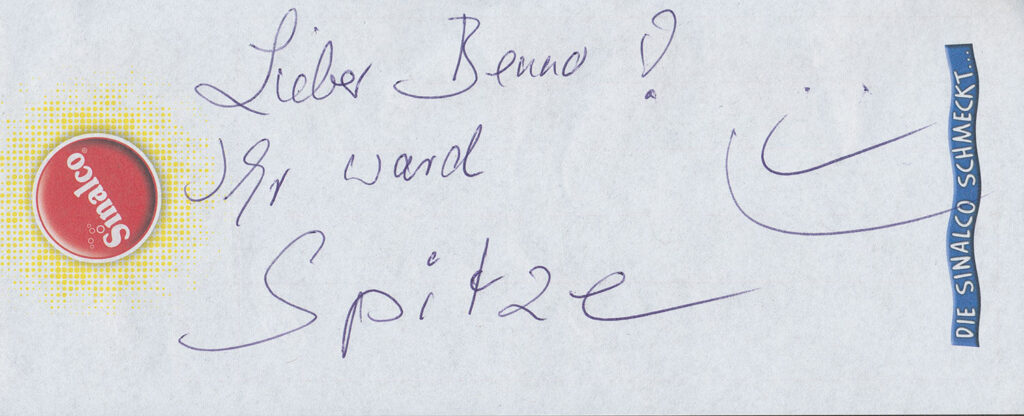 Lieber Benno!
Ihr ward
Spitze
Sinalco
DIE SINALCO SCHMECKT...